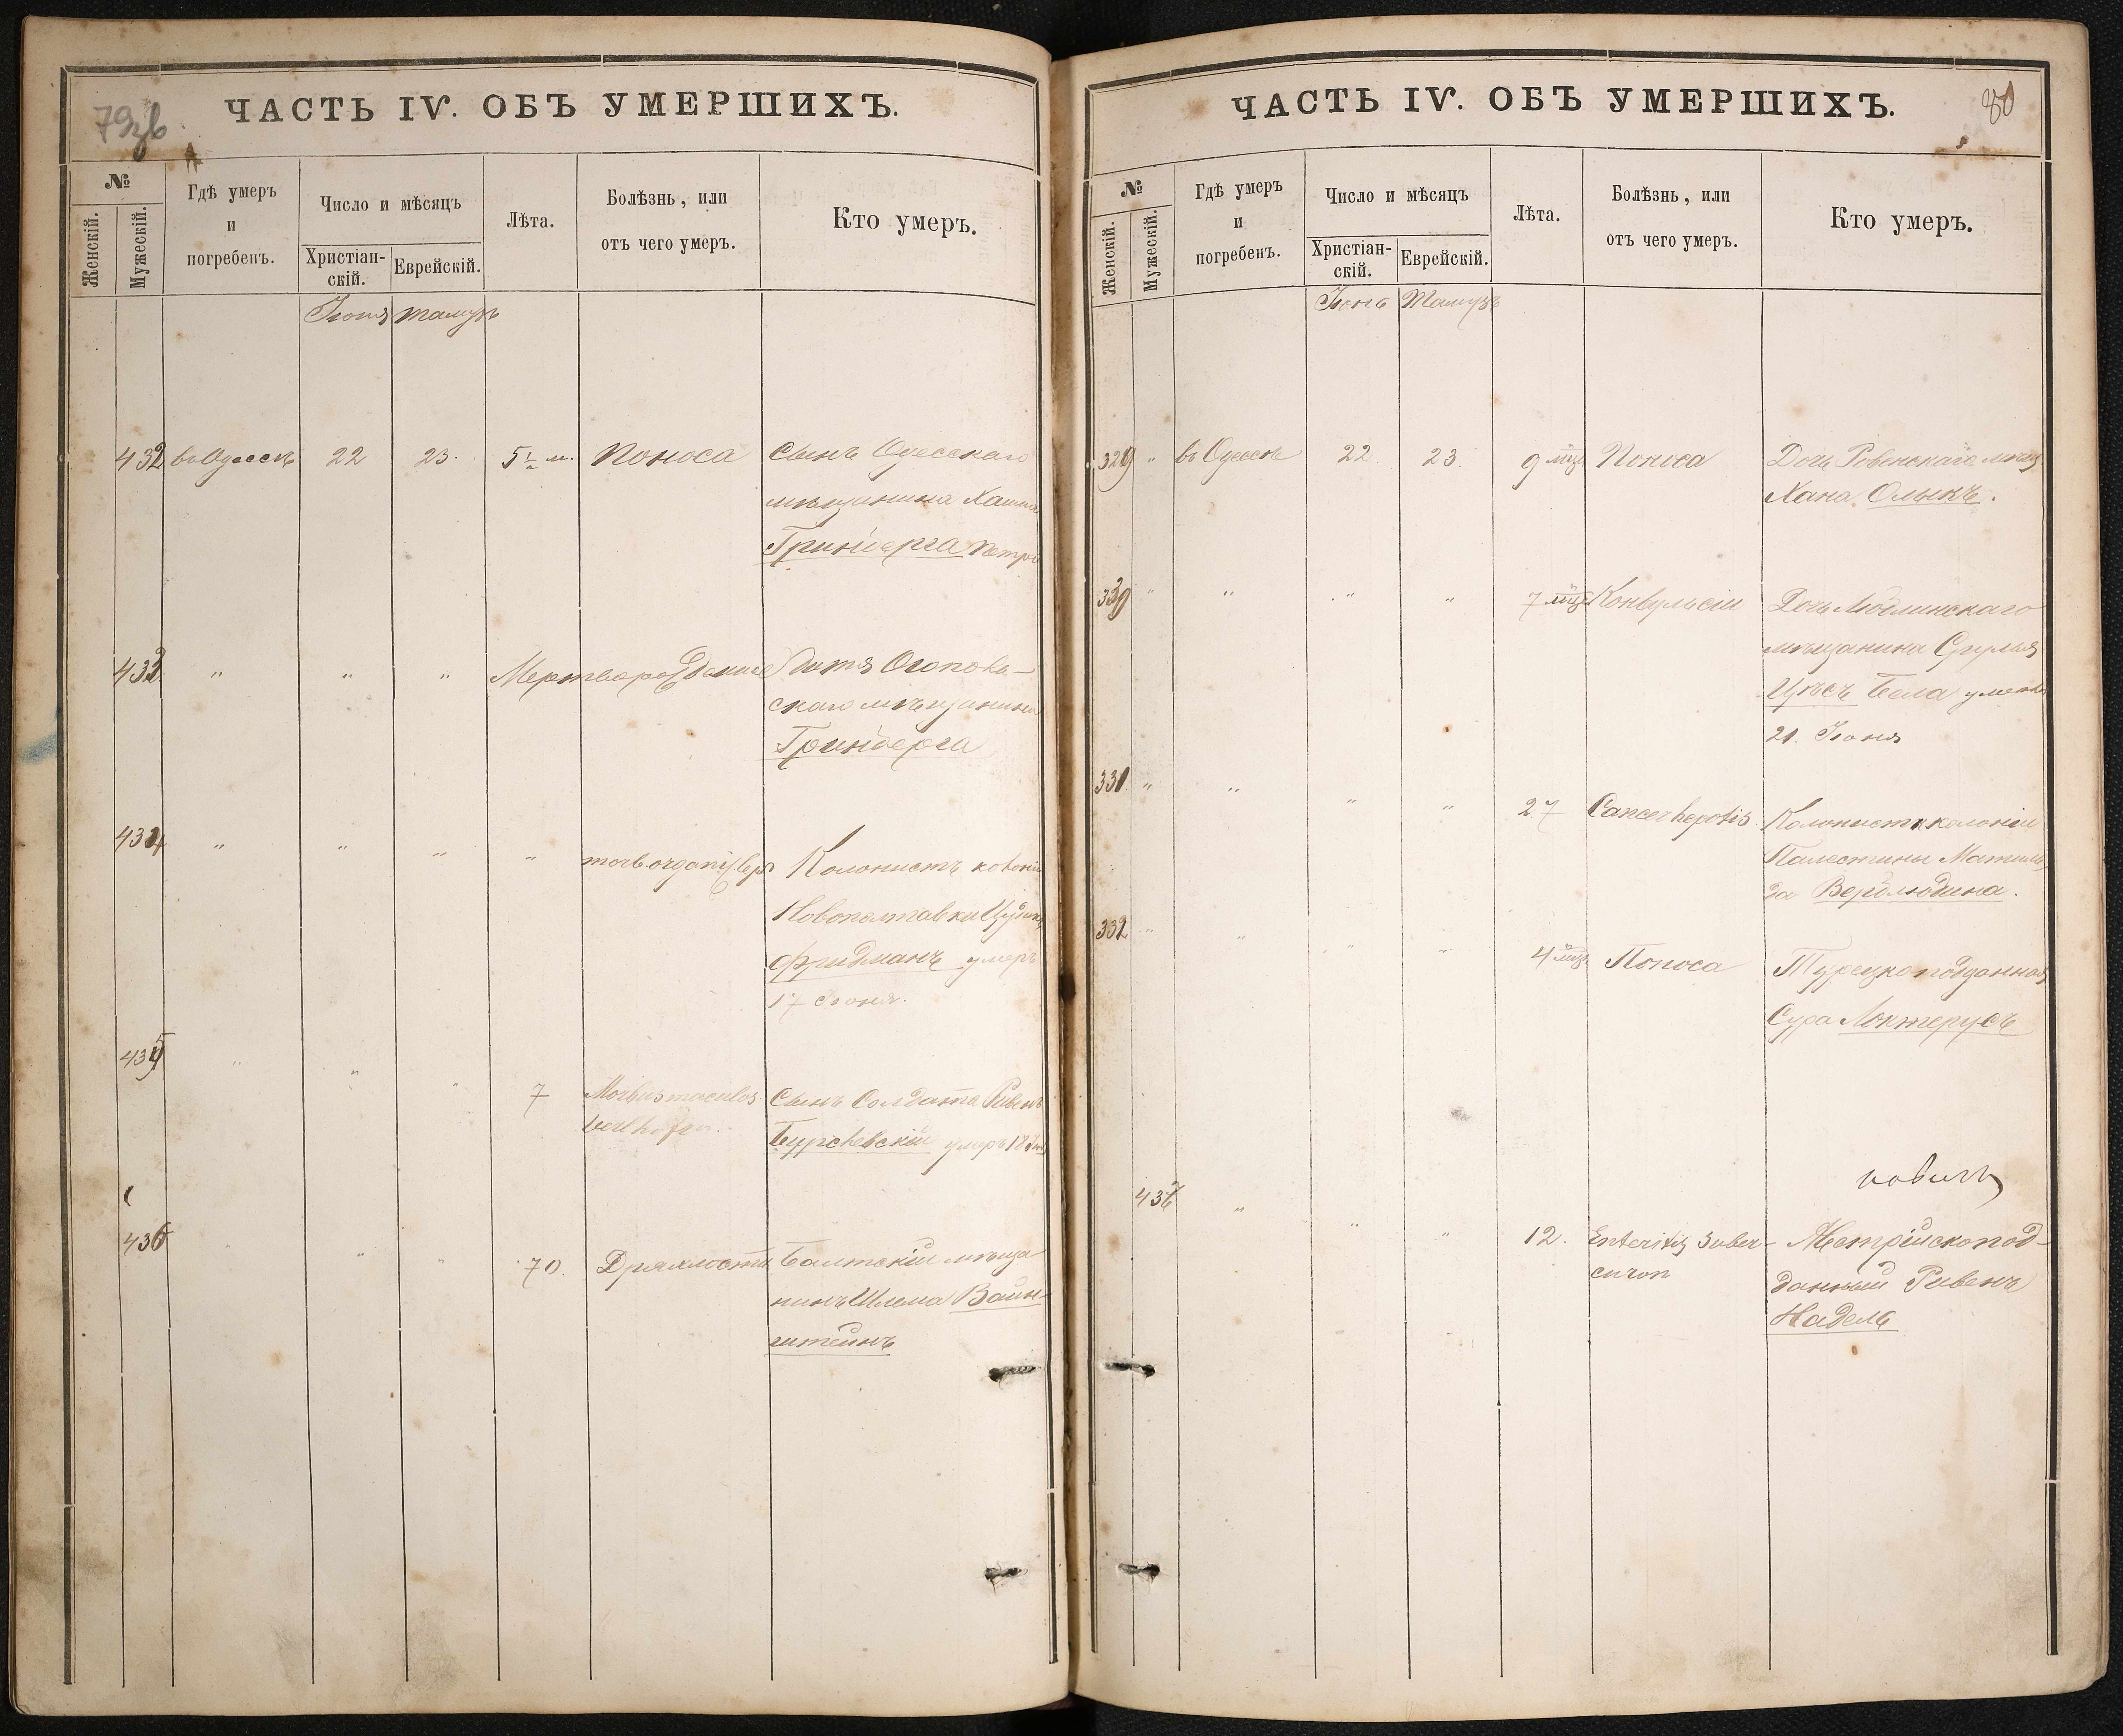 79зв
ЧАСТЬ IV. ОБЪ УМЕРШИХЪ.
№
Женскій.
Мужескій.
Гдѣ умеръ
и
погребенъ.
Число и мѣсяцъ
Христіан-
скій.
Еврейскій.
Лѣта.
Болѣзнь, или
отъ чего умеръ.
Кто умеръ.
Іюня Тамузъ
432 въ Одессѣ 22 23. 5½ м. Поноса Сынъ Одесскаго
мѣщанина
Гринберга
433 " " " Мертворожденное Дитя
скаго мѣщанина
Гринберга
434 " " " " morb. organ. Колонистъ колоніи
Новополтавки
Фридманъ умеръ
17 Іюня.
435 " " " 7 Morbus maculos. Сынъ Солдата Рувенъ
умеръ 18
436 " " 70. Дряхлость Балтскій мѣща
нинъ Шлема Ваин-
штейнъ
80
ЧАСТЬ IV. ОБЪ УМЕРШИХЪ.
№
Женскій.
Мужескій.
Гдѣ умеръ
и
погребенъ.
Число и мѣсяцъ
Христіан-
скій.
Еврейскій.
Лѣта.
Болѣзнь, или
отъ чего умеръ.
Кто умеръ.
Іюнь Тамузъ
329 " въ Одессѣ 22 23. 9 мѣс Поноса Дочь Ровенскаго мѣщ
Хана Олыкъ.
330 " " " " 7 мѣс Конвульсіи Дочь Люблинскаго
мѣщанина Сруля
Бела умерла
21. Іюня
331 " " " " 27 Cancer hepatis Колонистка колоніи
Палестины Матиль
да
332 " " " " 4 мѣс Поноса Турецкоподданная
Сура
новичъ
437 " " " 12. Enteritis tuber-
culon Австрійскопод-
данный Рувенъ
Надель